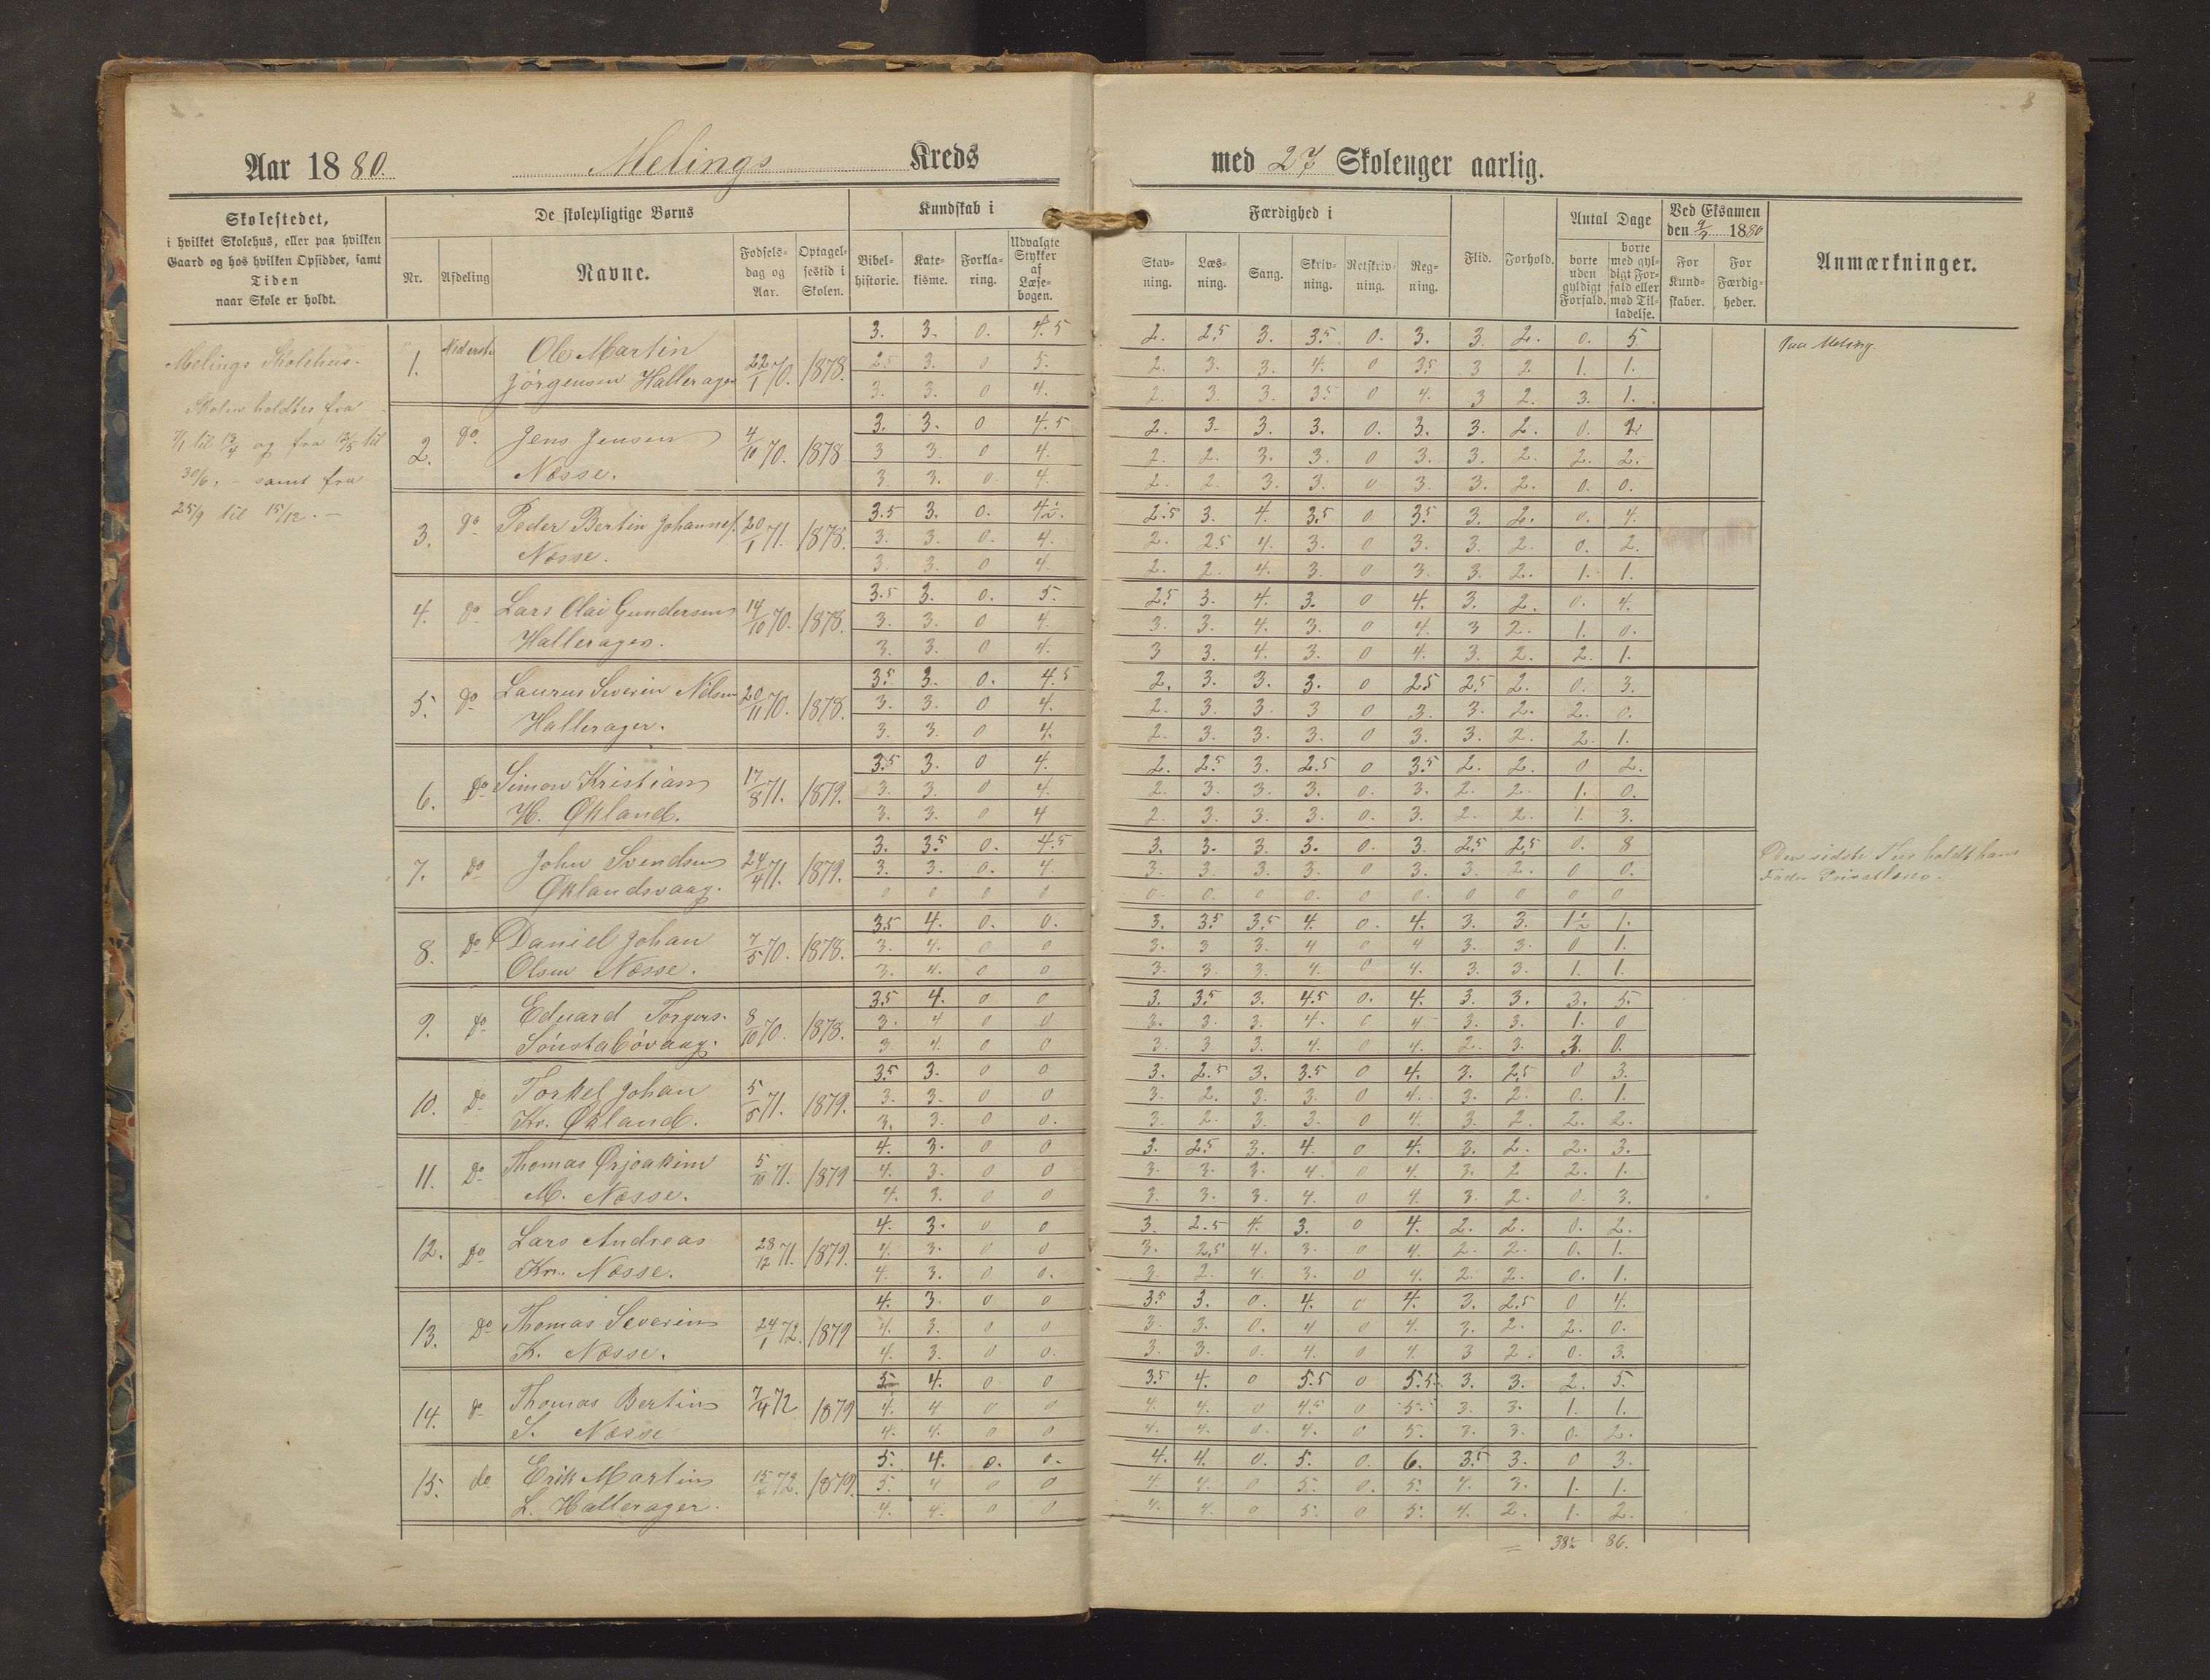 Aar 1880. Melings Kreds med 27 Skoleuger aarlig.
Skolestedet,
i hvilket Skolehus, eller paa hvilken
Gaard og hos hvilken Opsidder, samt
Tiden
naar Skole er holdt.
De skolepligtige Børns
Nr. Afdeling Navne.
Fødsels-
dag og
Aar.
Optagel-
sestid i
Skolen.
Kundskab i
Bibel-
historie.
Kate-
kisme.
Forkla-
ring.
Udvalgte
Stykker
af
Læse-
bogen.
Færdighed i
Stav-
ning.
Læs-
ning.
Sang.
Skriv-
ning.
Retskriv-
ning.
Reg-
ning.
Flid. Forhold.
Antal Dage
borte
uden
gyldigt
Forfald.
borte
med gyl-
digt For-
fald eller
med Til-
ladelse.
Ved Eksamen
den 1880
For
Kund-
skaber.
For
Færdig-
heder.
Anmærkninger.
Melings Skolehus.
Skolen holdtes fra
7/1 til 13/4 og fra 12/5 til
30/6, - samt fra
25/9 til 15/12. -
1. Nederste Ole Martin
Jørgensen Hallerager 22/1 70. 1878.
3. 3. 0. 4.5 2. 2.5 3. 3.5 0. 3. 3. 2. 0. 5 Paa Meling.
2.5 3. 0 5. 2. 3. 3. 4. 0 3.5 3 2. 1. 1.
3. 3. 0 4. 2. 3. 3. 3.5 0 4. 3 2. 3. 1.
2. do. Jens Jensen
Næsse. 4/10 70. 1878
3. 3. 0 4.5 2. 3. 3. 3. 0. 3. 3. 2. 0. 1.
3 3. 0 4. 2. 2. 3. 3. 0 3. 3. 2. 2. 2.
3. 3. 0. 4. 2. 2. 3. 3. 0 3. 3. 2. 0. 0.
3. do Peder Bertin Johannes.
Næsse. 20/1 71. 1878.
3.5 3. 0. 4½. 2.5 3. 4. 3.5 0. 3.5 3. 2. 0. 4.
3. 3. 0. 4. 2. 2.5 4. 3. 0 3. 3. 2. 0. 2.
3. 3. 0 4. 2. 2. 4. 3. 0 3. 3. 2. 1. 1.
4. do Lars Olai Gundersen
Hallerager. 14/10 70. 1878.
3.5 3. 0. 5. 2.5 3. 4. 3. 0 4. 3. 2. 0. 4.
3. 3. 0 4. 3. 3. 4. 3. 0 4. 3 2. 1. 0.
3. 3. 0 4. 3 3. 4. 3. 0 4. 3. 2. 2. 1.
5. do Laurus Severin Nilsen
Hallerager. 20/11 70. 1878.
3.5 3. 0. 4.5 2. 3. 3. 3. 0 2.5 2.5 2. 0. 3.
3. 3. 0 4. 2. 3. 3. 3 0 3. 3. 2. 2. 0.
3. 3. 0 4. 2. 3. 3. 3. 0 3. 3. 2. 2. 1.
6. Do Simon Kristian
H. Økland. 17/8 71. 1879.
3.5 3. 0 4. 2. 2.5 3. 2.5 0 3.5 2. 2. 0 2.
3. 3. 0 4. 2. 3. 3. 3. 0. 3. 2. 2. 1. 0.
3. 3. 0 4 2. 3. 3. 3. 0. 3. 2. 2. 1. 3.
7. Do John Svendsen
Øklandsvaag. 24/4 71. 1879.
3. 3.5 0. 4.5 3. 3. 3. 3. 0. 3. 2.5 2.5 0. 8 Den sidste Tur holdt hans
3. 3. 0. 4. 3. 3. 3. 3. 0 3. 3. 2. 0 0. Fader Privatlærer.
0 0 0 0 0. 0. 0. 0. 0 0. 0 0 0 0
8. Do Daniel Johan
Olsen Næsse. 7/5 70. 1878.
3.5 4. 0. 0. 3. 3.5 3.5 4. 0. 4. 3. 3. 1½ 1.
3. 4. 0 0 3. 3 3. 4 0 4 3. 3. 0 1.
3. 4. 0 0 3. 3. 3. 4. 0 4. 3. 3. 1. 1.
9. Do Eduard Torgers.
Sønstabøvaag. 8/10 70. 1878.
3.5 4. 0 0 3. 3.5 3. 4.5 0. 4. 3. 3. 3. 5.
3. 4 0 0 3. 3. 3. 4. 0 4 3. 3. 1. 0
3. 4. 0 0 3. 3 3. 4. 0 4. 2. 3. 3. 0.
10. Do Torkel Johan
Kr. Økland. 5/5 71. 1879.
3.5 3. 0 0 3. 2.5 3. 3.5 0 4. 3. 2.5 0 3.
3. 3. 0 0 3. 2. 3. 3. 0 4. 3. 2. 0. 1.
3. 3. 0 0. 3. 2. 3. 3. 0 4. 3. 2 2. 2.
11. Do Thomas Ørjoakim
M. Næsse. 5/10 71. 1879
4. 3. 0 0 3. 2.5 3. 4. 0 4. 3. 2. 2. 3.
4. 3. 0 0 3. 3. 3. 4. 0 4. 3. 2 2. 1.
4. 3. 0 0 3. 3. 3. 4. 0 4. 3. 2. 0. 3.
12. Do Lars Andreas
Kn. Næsse. 28/12 71. 1879.
4. 3. 0 0 3. 2.5 4. 3. 0 4. 2. 2. 0. 2.
4. 3. 0 0 3. 2.5 4. 3. 0 4. 2. 2. 0. 1.
4. 3. 0 0. 3. 2. 4. 3. 0 4. 2. 2. 0. 1.
13. Do Thomas Severin
K. Næsse. 24/1 72. 1879
4. 3. 0 0 3.5 3. 0. 4. 0 4. 3. 2.5 0 4.
4. 3. 0 0 3. 3. 0. 4 0 4. 3. 2. 2. 0.
4. 3. 0 0. 3. 3. 0. 4. 0 4. 3 2. 0. 3.
14. do Thomas Bertin
S. Næsse 7/4 72 1879
5. 4. 0 0 3.5 4. 0 5.5 0 5.5 3. 3. 2. 5.
4. 4 0 0 4. 4. 0 4.5 0 5. 3. 3. 1. 1.
4. 4. 0 0 4. 4. 0. 4. 0 5. 3. 3. 0. 2.
15. do Erik Martin
L. Hallerager. 72. 1879.
5. 4. 0. 0. 4. 4. 0. 5. 0. 6. 3.5 3. 0 3.
5. 4 0 0 4. 4. 0 5. 0. 5. 4. 3. 1. 1.
4. 4. 0 0 4. 4. 0 5. 0 5. 4. 2. 1. 2.
= 38½ 86.